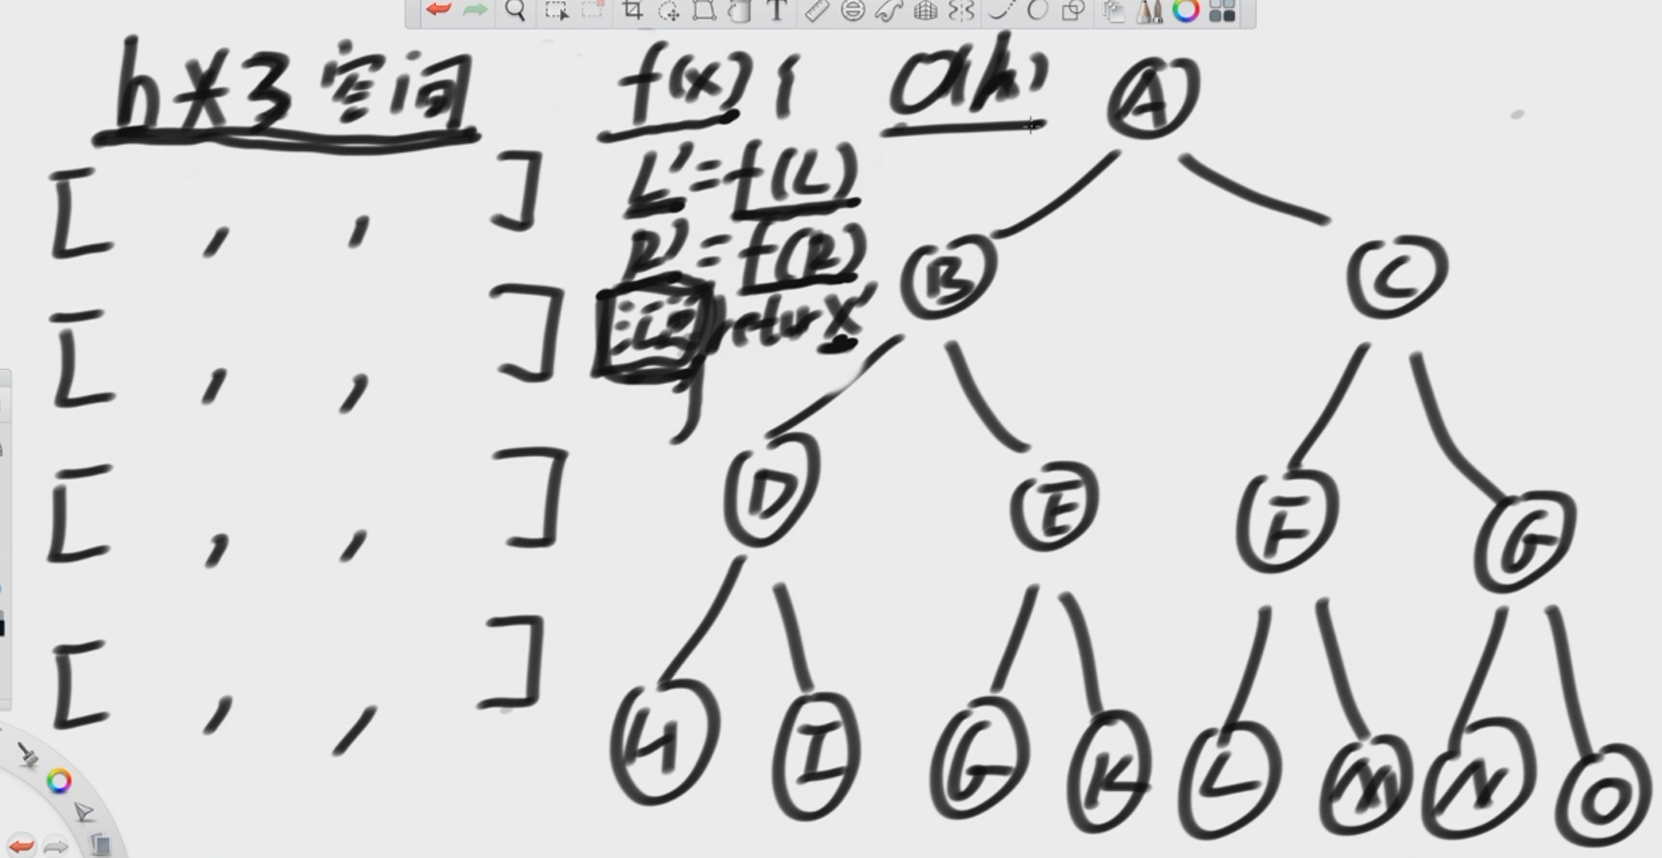 h*3空间
[ , , ]
[ , , ]
[ , , ]
[ , , ]
f(x) {
L'=f(L)
R'=f(R)
return X'
}
O(h)
A
B C
D E F G
H I G K L M N O